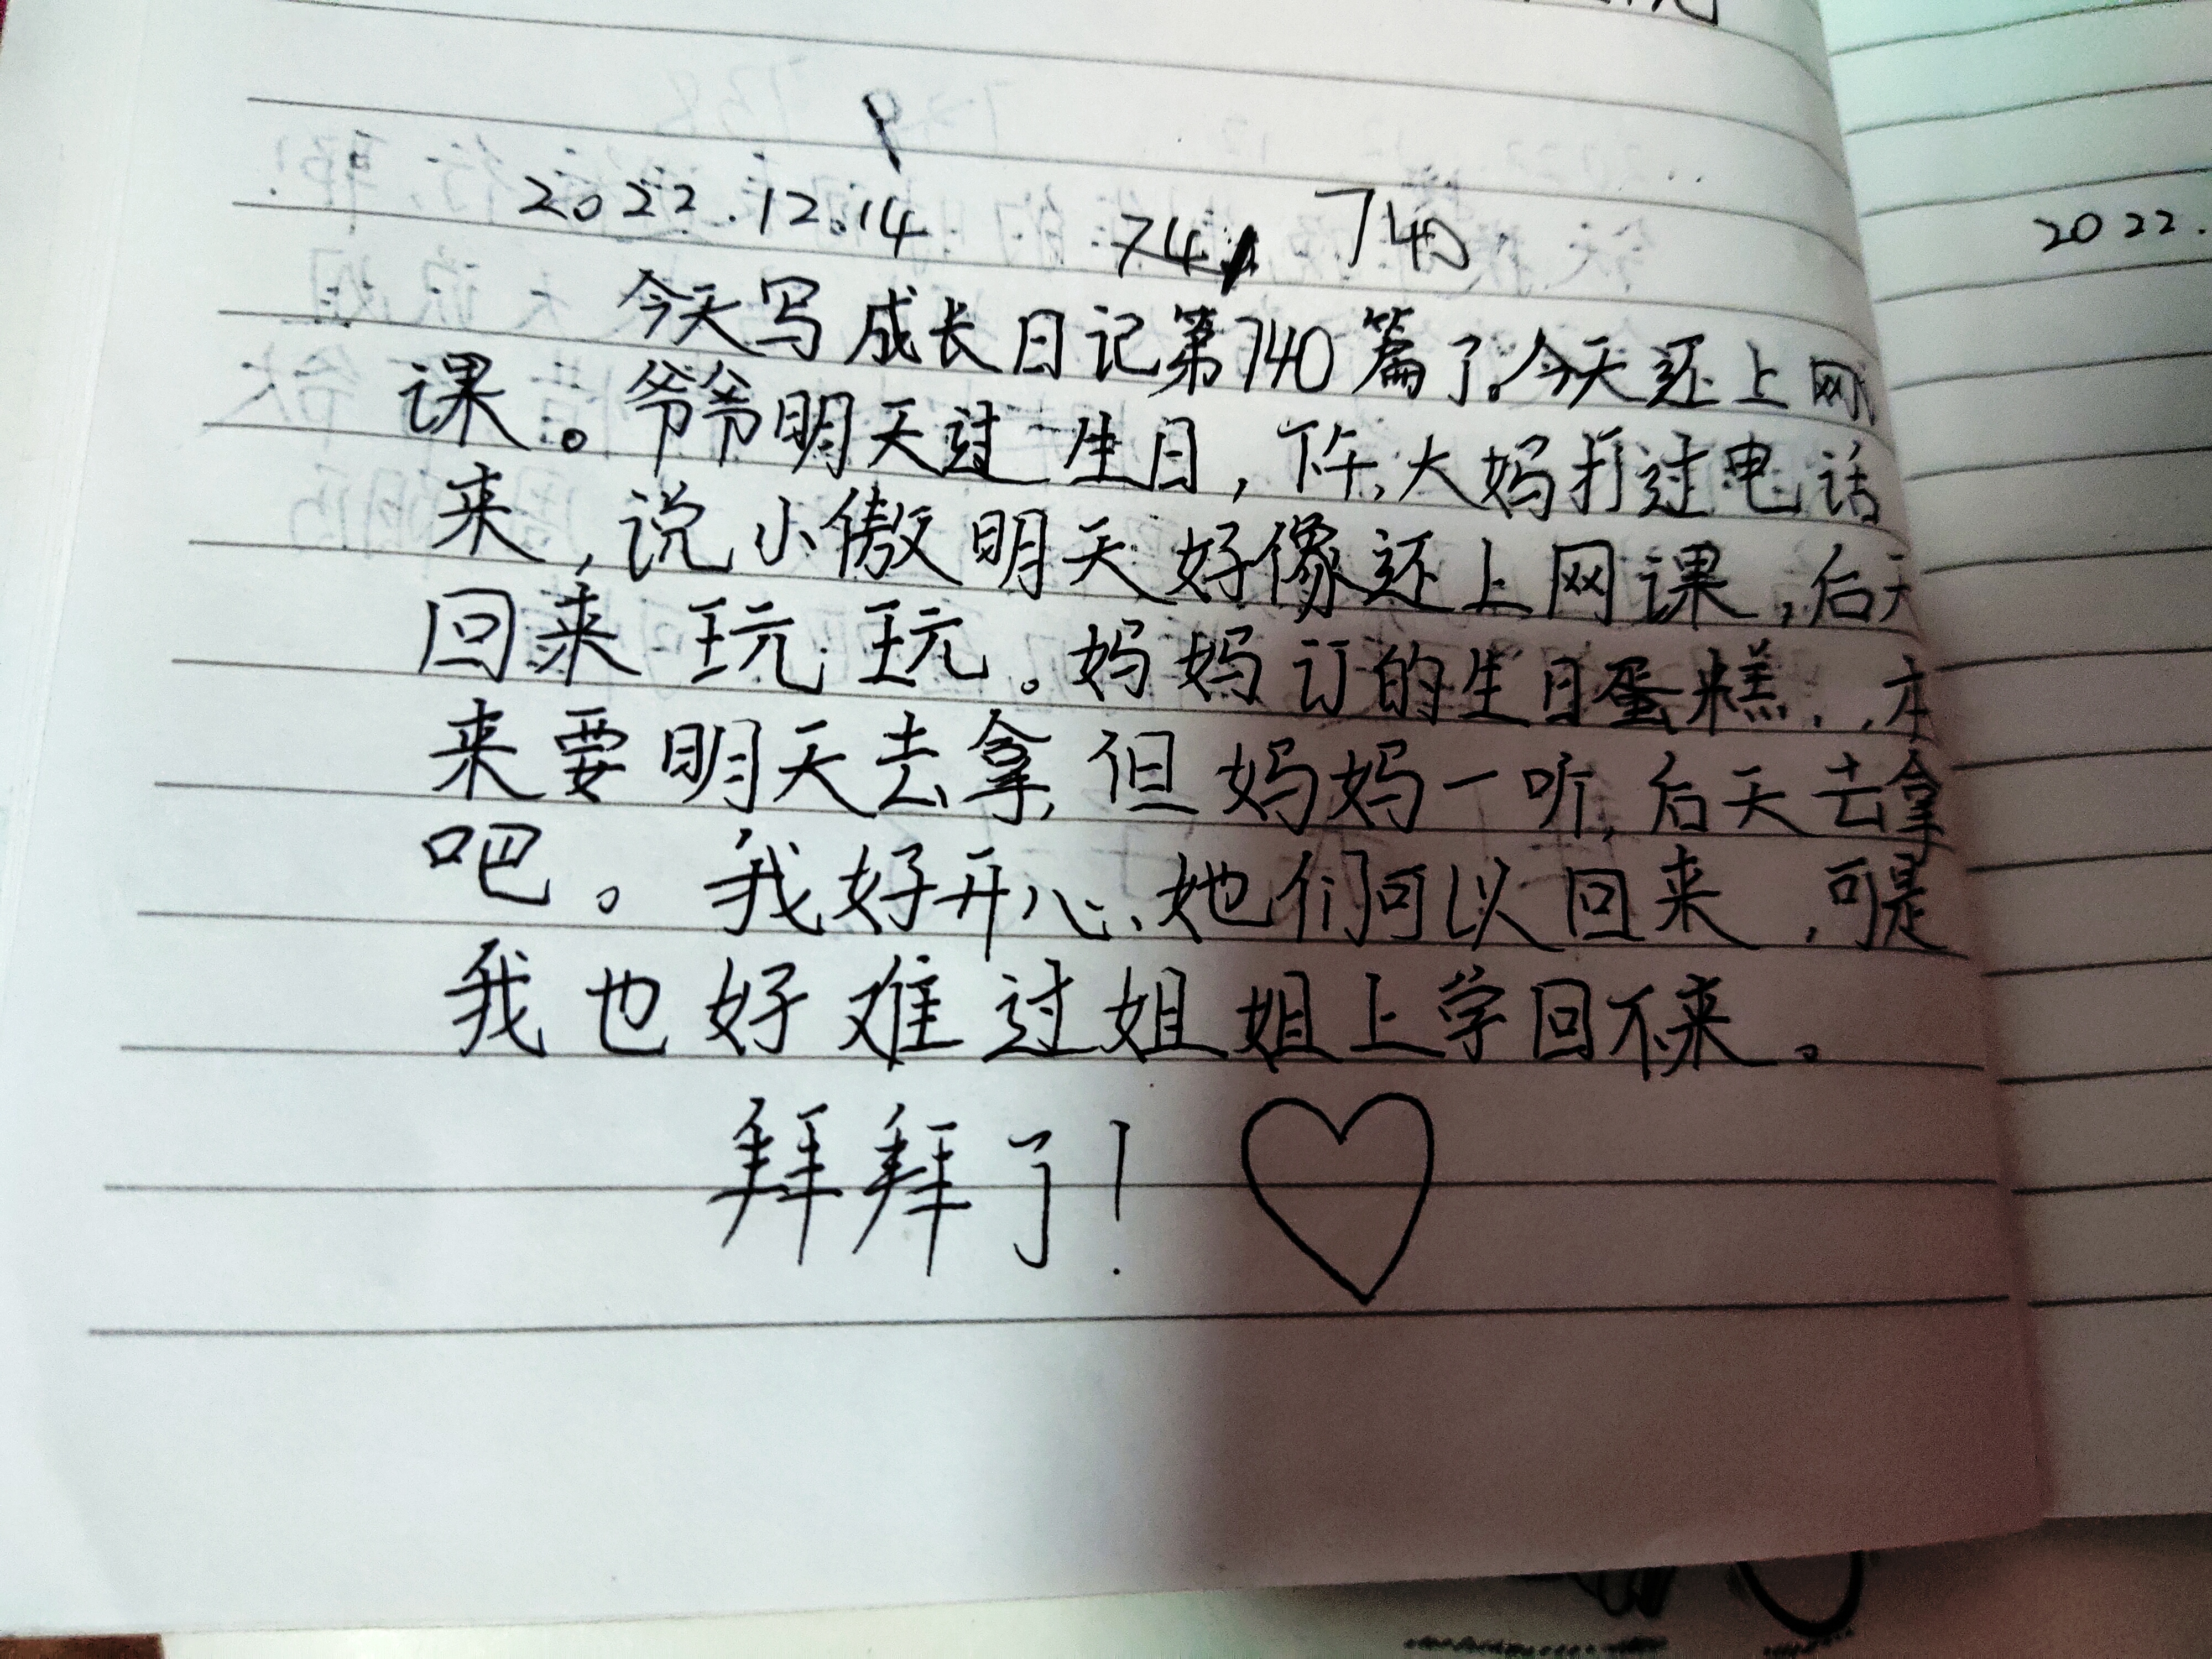 9
2022.12.14 741 740
今天写成长日记第740篇了。今天还上网
课。爷爷明天过生日，下午，大妈打过电话
来，说小傲明天好像还上网课，后天
回来玩玩。妈妈订的生日蛋糕，本
来要明天去拿，但妈妈一听，后天去拿
吧。我好开心，她们可以回来，可是
我也好难过姐姐上学回不来。
拜拜了！
2022.